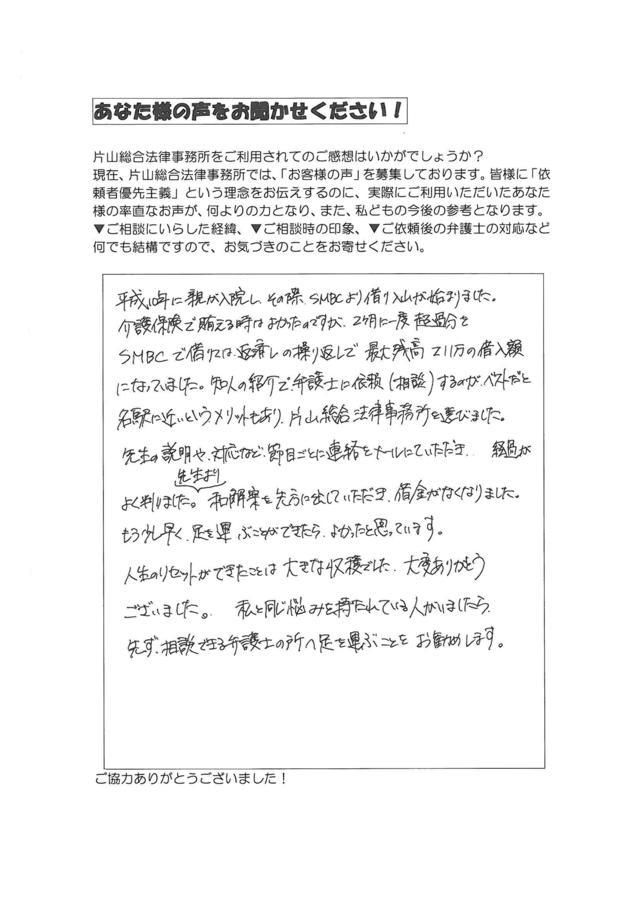 あなた様の声をお聞かせください！
片山総合法律事務所をご利用されてのご感想はいかがでしょうか？
現在、片山総合法律事務所では、「お客様の声」を募集しております。皆様に「依
頼者優先主義」という理念をお伝えするのに、実際にご利用いただいたあなた
様の率直なお声が、何よりの力となり、また、私どもの今後の参考となります。
▼ご相談にいらした経緯、▼ご相談時の印象、▼ご依頼後の弁護士の対応など
何でも結構ですので、お気づきのことをお寄せください。
平成10年に親が入院し、その際、SMBCより借り入れが始まりました。
介護保険で賄える時はよかったのですが、2ヶ月に一度 超過分を
SMBCで借りては、返済しの繰り返しで 最大残高 211万の借入額
になっていました。知人の紹介で、弁護士に依頼(相談)するのが、ベストだと
名駅に近いというメリットもあり、片山総合法律事務所を選びました。
先生の説明や、対応など、節目ごとに連絡をメールにていただき、経過が
先生より
よく判りました。和解案を先方に出していただき、借金がなくなりました。
もう少し早く、足を運ぶことができたら、よかったと思っています。
人生のリセットができたことは 大きな収穫でした、大変ありがとう
ございました。私と同じ悩みを持たれている人がいましたら、
先ず、相談できる弁護士の所へ足を運ぶことを お勧めします。
ご協力ありがとうございました！